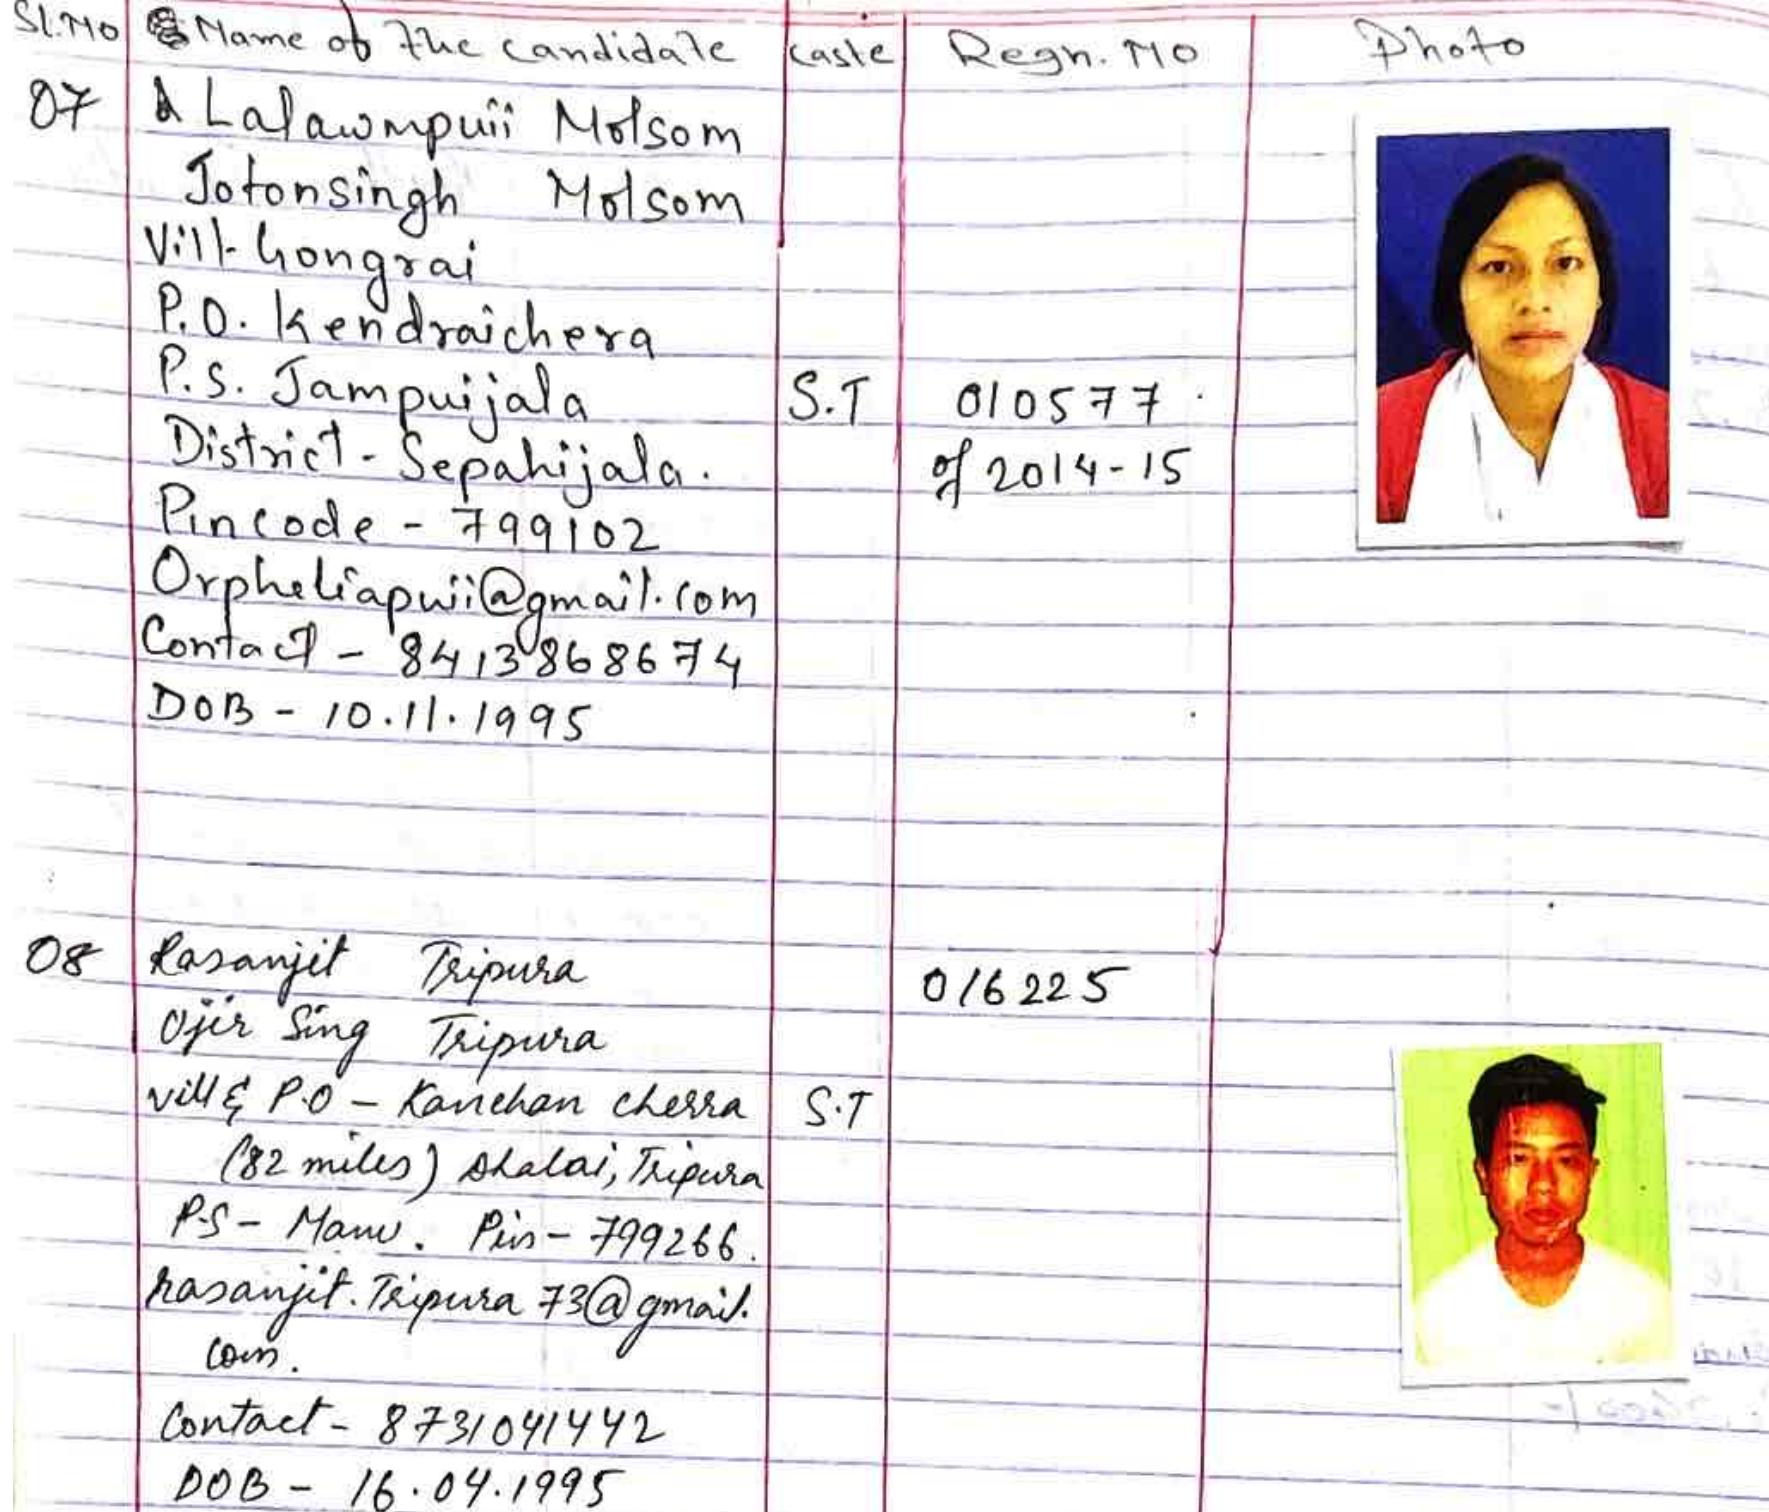 Sl.No Name of the candidate caste Regn. No Photo
07 Lalawmpuii Molsom
Jotonsingh Molsom
Vill- Gongrai
P.O. Kendraichera
P.S. Jampuijala S.T 010577
District - Sepahijala. of 2014-15
Pincode - 799102
Orpheliapuii@gmail.com
Contact - 8413868674
DOB - 10.11.1995
08 Rasanjit Tripura 016225
Ojir Sing Tripura
vill & P.O - Kanchan cherra S.T
(82 miles) Dhalai, Tripura
P.S - Manu. Pin - 799266.
rasanjit.Tripura73@gmail.
com.
Contact - 8731041442
DOB - 16.04.1995